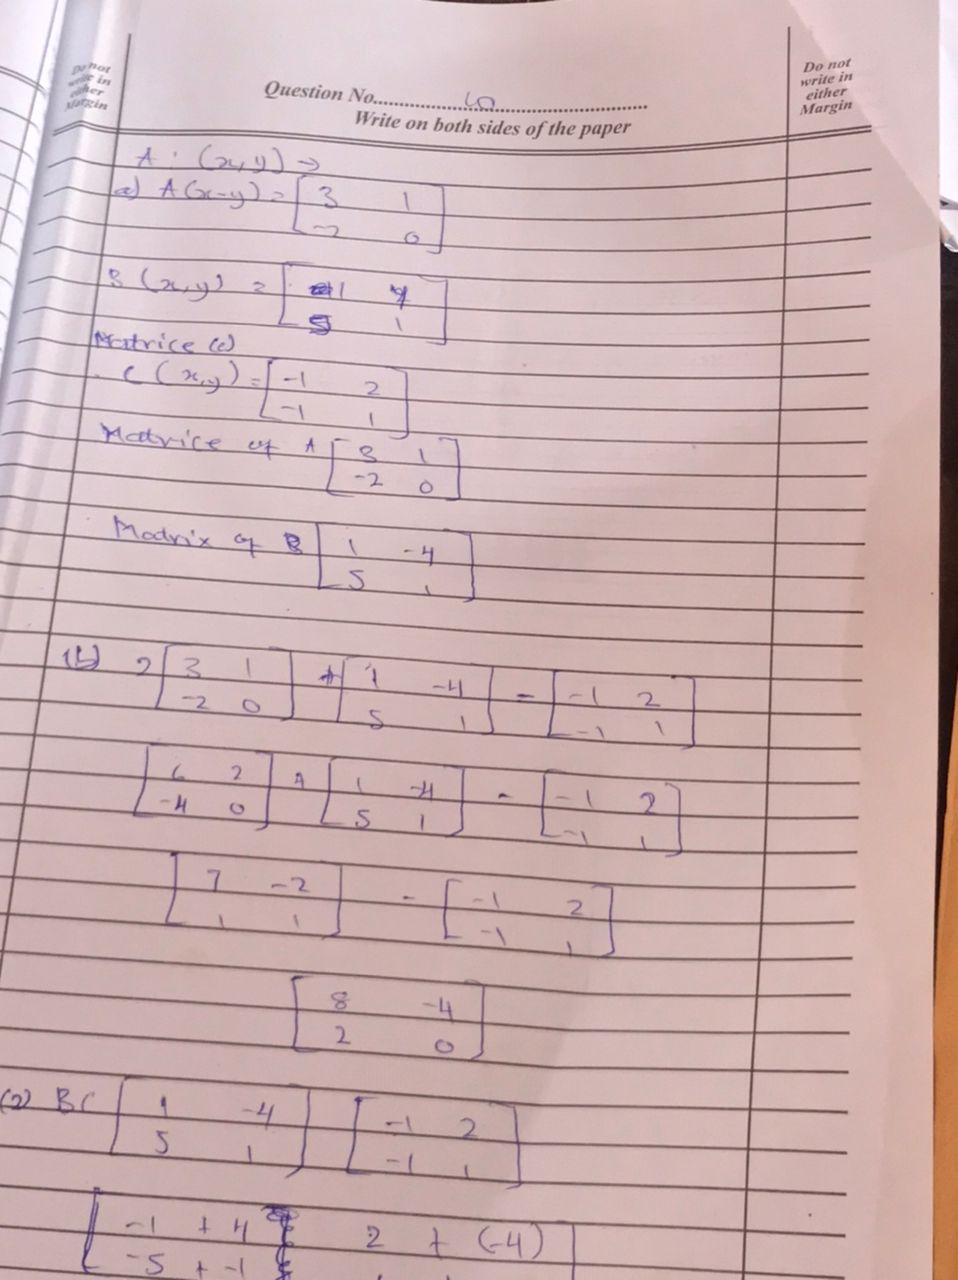 Do not
write in
either
Margin
Question No.
Write on both sides of the paper
Do not
write in
either
Margin
A : (x,y) →
a) A(x-y) = [ 3 1
-2 0 ]
B (x,y) = [ 1
5 1 ]
Matrice (c)
C (x,y) = [ -1 2
-1 1 ]
Matrice of A [ 3 1
-2 0 ]
Matrix of B [ 1 -4
5 1 ]
(b) 2 [ 3 1 ] + [ 1 -4 ] - [ -1 2
-2 0 5 1 -1 1 ]
[ 6 2 ] + [ 1 -4 ] - [ -1 2
-4 0 5 1 -1 1 ]
[ 7 -2 ] - [ -1 2
1 1 -1 1 ]
[ 8 -4
2 0 ]
(2) BC [ 1 -4 ] [ -1 2
5 1 -1 1 ]
[ -1 + 4 2 + (-4) ]
-5 + -1